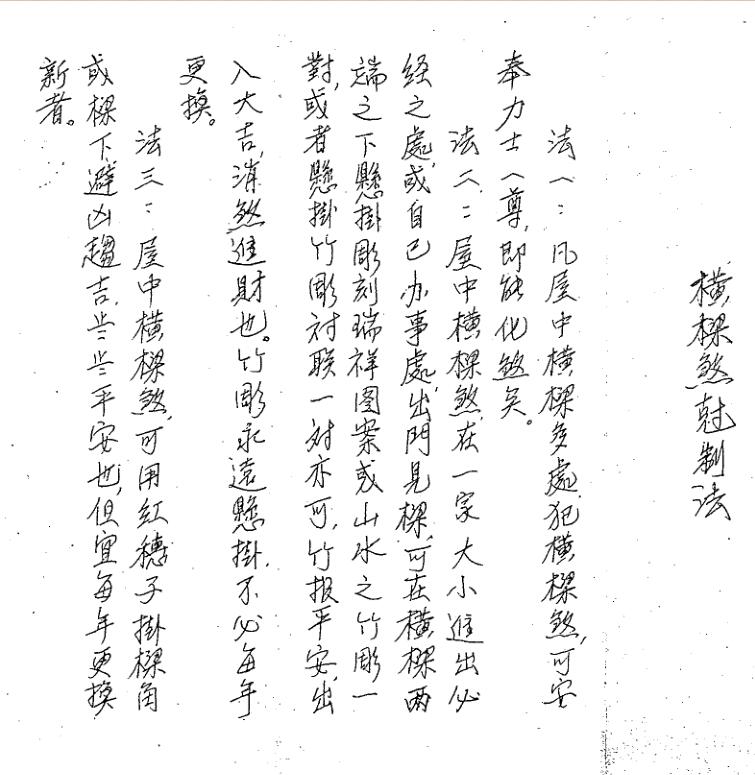 橫樑煞尅制法
法一：凡屋中橫樑多處犯橫樑煞，可安
奉力士一尊，即能化煞矣。
法二：屋中橫樑煞在一家大小進出必
经之處，或自己办事處，出門見樑，可在橫樑兩
端之下懸掛彫刻瑞祥图案或山水之竹彫一
對，或者懸掛竹彫对联一对亦可，竹报平安，出
入大吉，消煞進財也。竹彫永遠懸掛，不必每年
更換。
法三：屋中橫樑煞，可用紅穗子掛樑角
或樑下，避凶趨吉，些些平安也，但宜每年更換
新者。